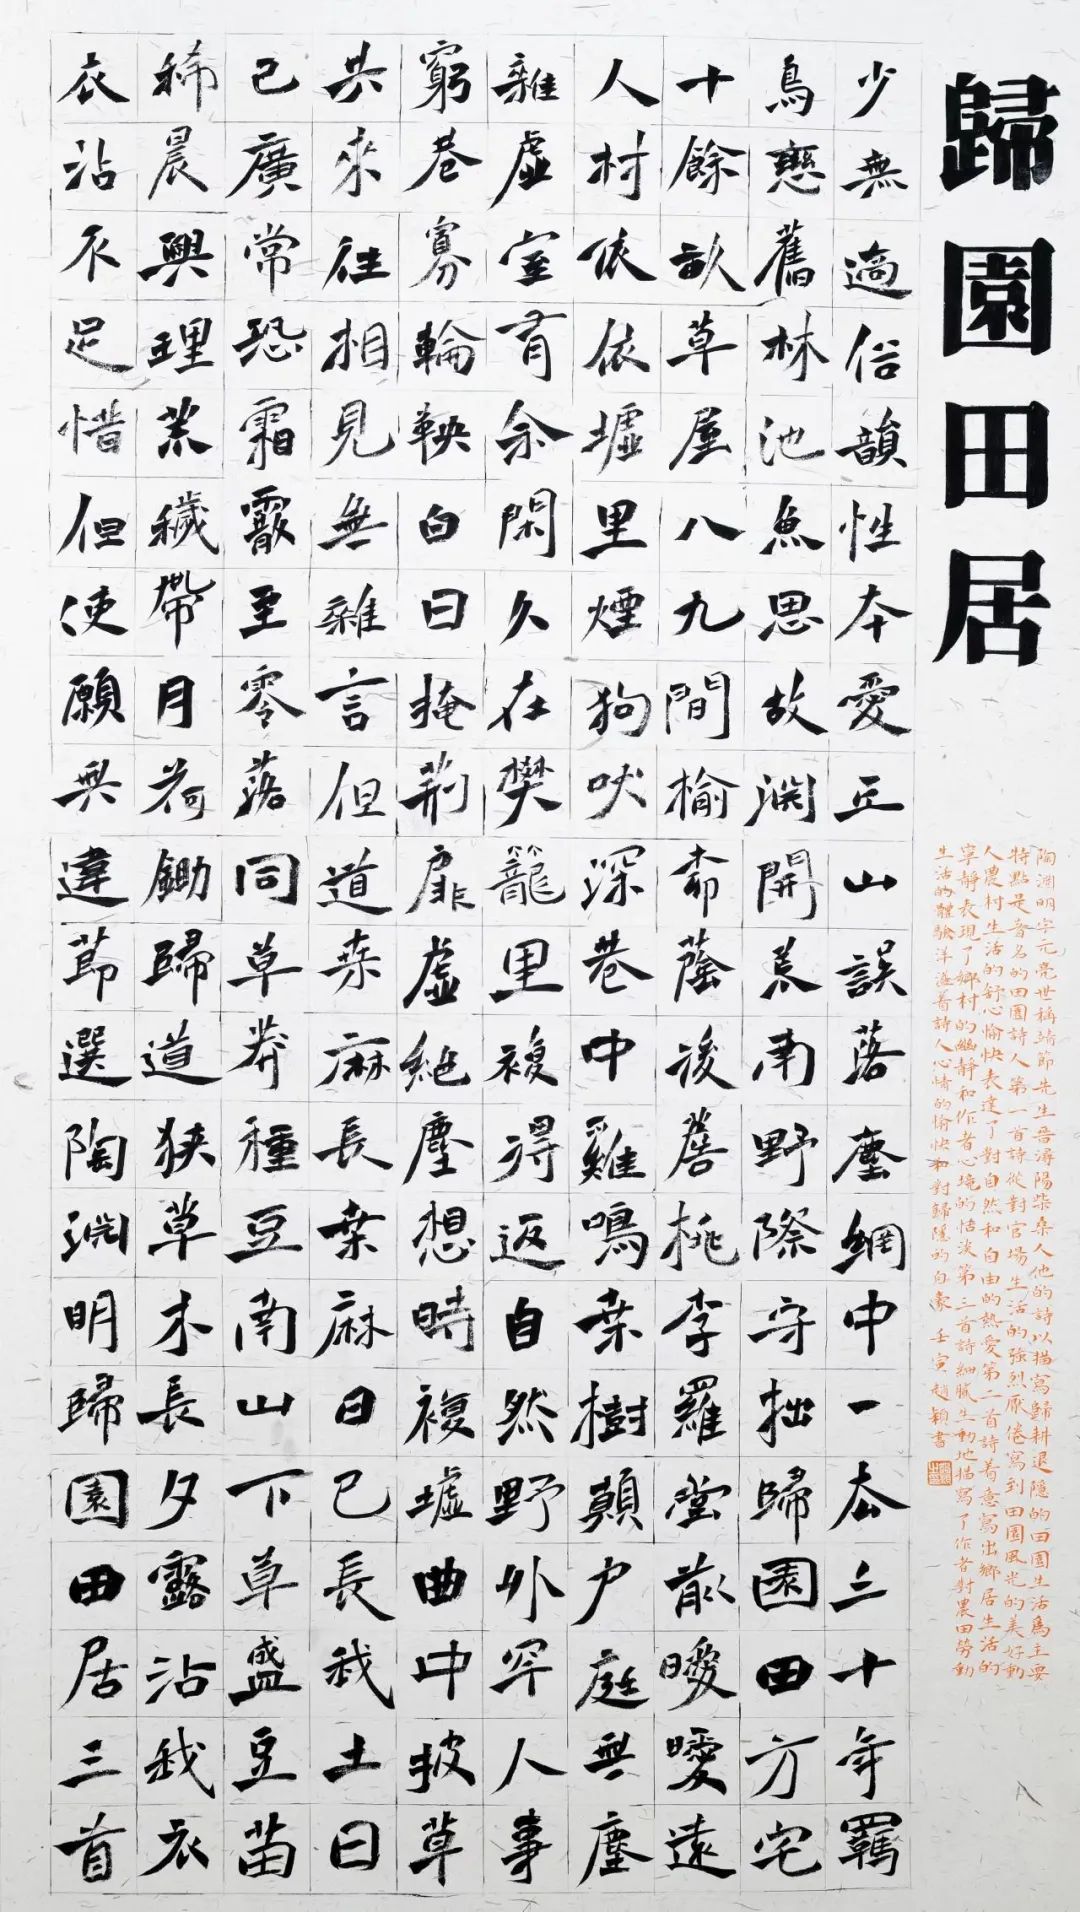 歸園田居
陶淵明字元亮世稱靖節先生晉潯陽柴桑人他的詩以描寫歸耕退隱的田園生活爲主要
特點是著名的田園詩人第一首詩從對官場生活的強烈厭倦寫到田園風光的美好動
人農村生活的舒心愉快表達了對自然和自由的熱愛第二首詩着意寫出鄉居生活的
寧靜表現了鄉村的幽靜和作者心境的恬淡第三首詩細膩生動地描寫了作者對農田勞動
生活的體驗洋溢着詩人心情的愉快和對歸隱的自豪壬寅趙穎書
少無適俗韻性本愛丘山誤落塵網中一去三十年羈
鳥戀舊林池魚思故淵開荒南野際守拙歸園田方宅
十餘畝草屋八九間榆柳蔭後簷桃李羅堂前曖曖遠
人村依依墟里煙狗吠深巷中雞鳴桑樹顛戶庭無塵
雜虛室有余閑久在樊籠里複得返自然野外罕人事
窮巷寡輪鞅白日掩荊扉虛絕塵想時複墟曲中披草
共來往相見無雜言但道桑麻長桑麻日已長我土日
已廣常恐霜霰至零落同草莽種豆南山下草盛豆苗
稀晨興理荒穢帶月荷鋤歸道狹草木長夕露沾我衣
衣沾不足惜但使願無違節選陶淵明歸園田居三首